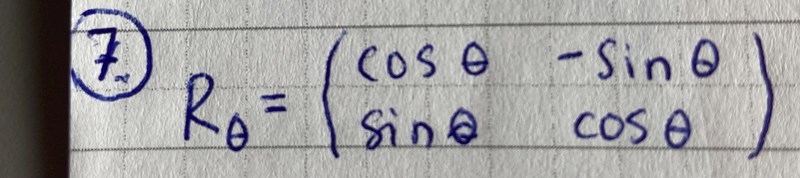 7.
R_θ = ( cos θ   -sin θ
sin θ   cos θ )